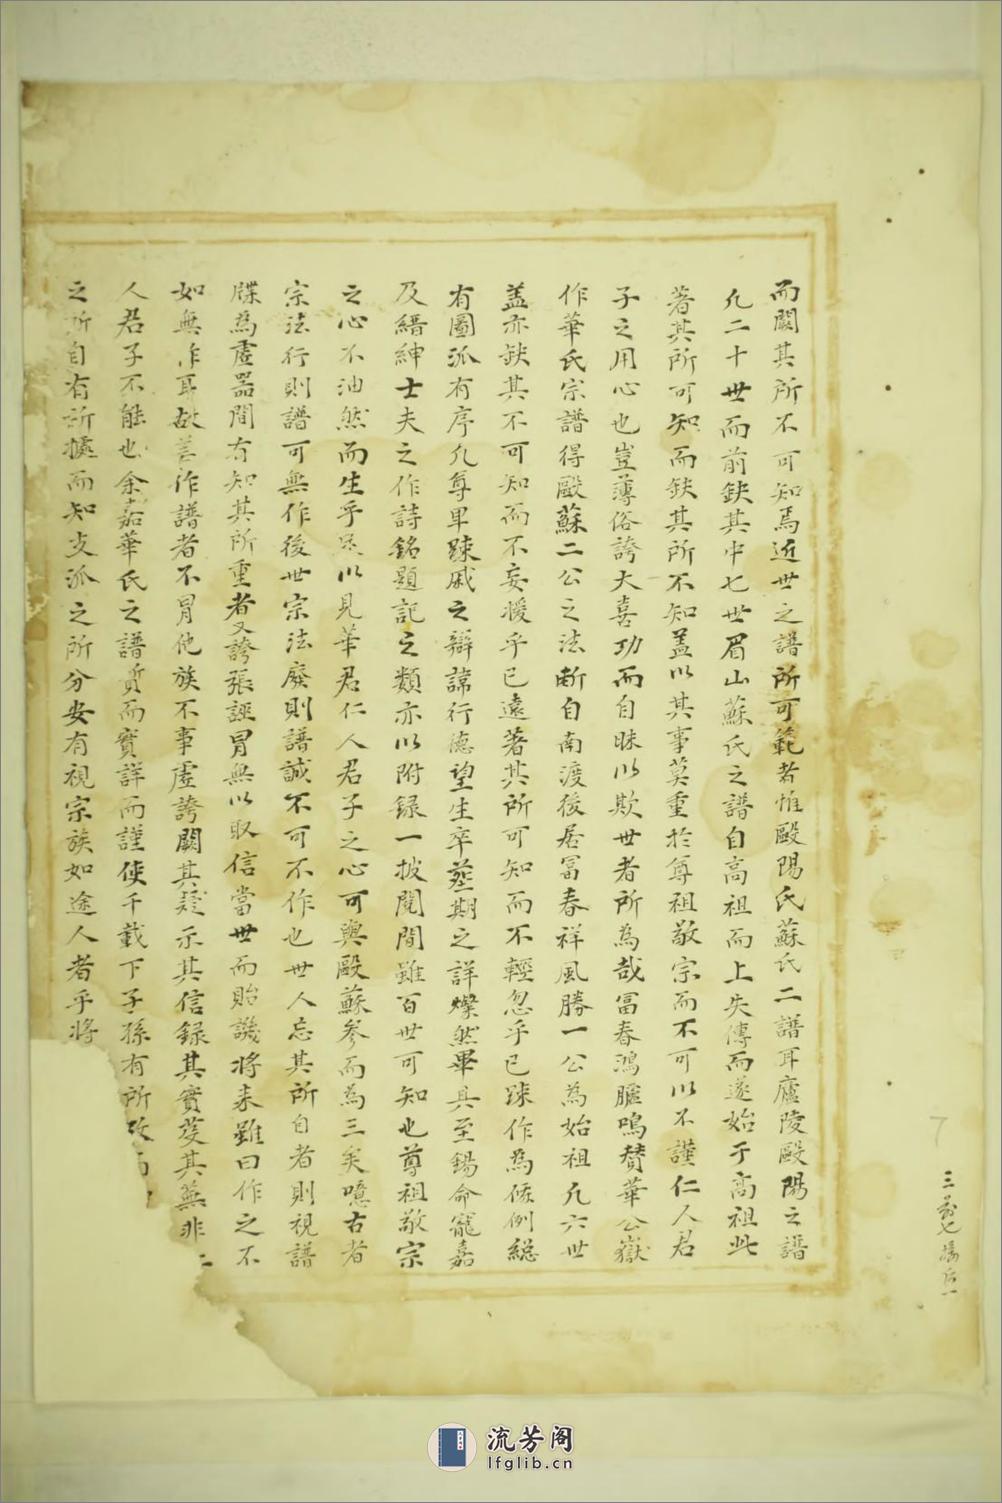 而闕其所不可知焉近世之譜所可範者惟毆陽氏蘇氏二譜耳廬陵毆陽之譜
凡二十世而前缺其中七世眉山蘇氏之譜自高祖而上失傳而遂始于高祖此
著其所可知而缺其所不知盖以其事莫重於尊祖敬宗而不可以不謹仁人君
子之用心也豈薄俗誇大喜功而自昧以欺世者所為哉冨春鴻臚鳴賛華公嶽
作華氏宗譜得毆蘇二公之法断自南渡後居冨春祥風勝一公為始祖凡六世
盖亦缺其不可知而不妄援乎已遠著其所可知而不輕忽乎已踈作為条例総
有圖派有序凡尊卑踈戚之辯諱行德望生卒塟期之詳燦然畢具至錫命寵嘉
及縉紳士夫之作詩銘題記之類亦以附録一披閱間雖百世可知也尊祖敬宗
之心不油然而生乎是以見華君仁人君子之心可與毆蘇参而為三矣噫古者
宗法行則譜可無作後世宗法廢則譜誠不可不作也世人忘其所自者則視譜
牒為虚器間有知其所重者又誇張誣冒無以取信當世而貽譏将来雖曰作之不
如無作耳故善作譜者不冐他族不事虚誇闕其疑示其信録其實芟其蕪非仁
人君子不能也余嘉華氏之譜質而實詳而謹使千載下子孫有所攷而
之所自有所據而知支派之所分安有視宗族如途人者乎将
7
流芳阁
lfglib.cn